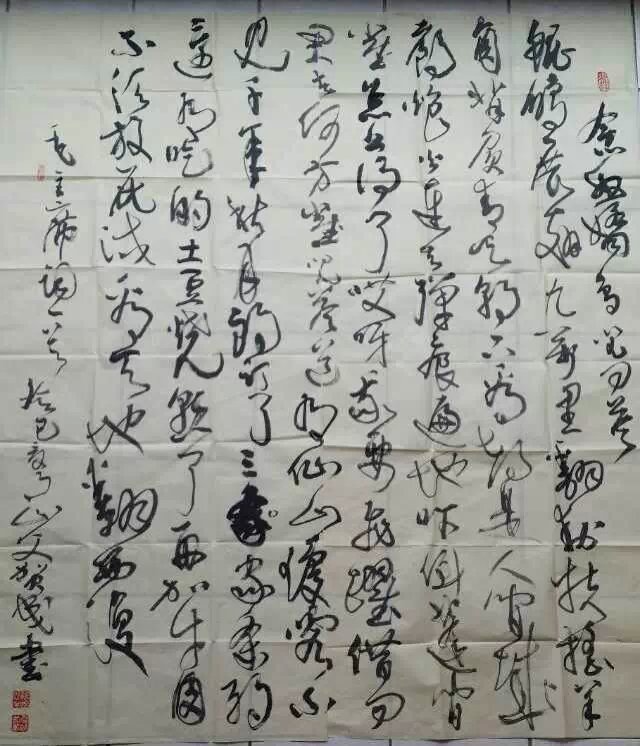 念奴娇鸟儿问答
鲲鹏展翅九万里翻动扶摇羊
角背负青天朝下看都是人间城
郭炮火连天弹痕遍地吓倒蓬间
雀怎么得了哎呀我要飞跃借问
君去何方雀儿答道有仙山琼阁不
见前年秋月朗订了三家条约
还有吃的土豆烧熟了再加牛肉
不须放屁试看天地翻覆
毛主席词一首 癸巳 山 书